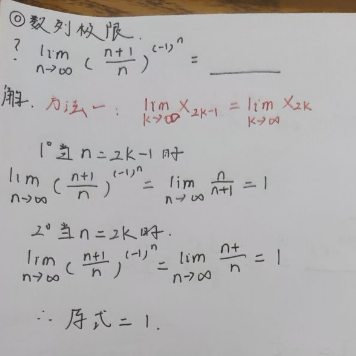 ◎数列极限.
? lim n→∞ (n+1/n)^(-1)^n = ______
解. 方法一: lim k→∞ X2k-1 = lim k→∞ X2k
1° 当 n=2k-1 时
lim n→∞ (n+1/n)^(-1)^n = lim n→∞ n/n+1 = 1
2° 当 n=2k 时.
lim n→∞ (n+1/n)^(-1)^n = lim n→∞ n+/n = 1
∴ 原式 = 1.